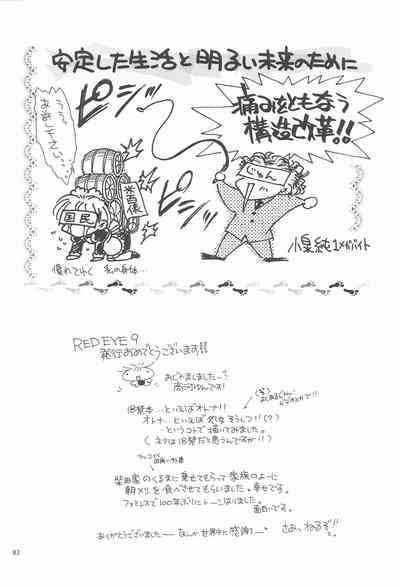 安定した生活と明るい未来のために
痛みをともなう
構造改革!!
ピシッ
ピシッ
うぅ…
お許し下さい…
米百俵
国民
じゅん
小泉純1メガバイト
壊れてゆく 私の身体…
RED EYE 9
発行おめでとうございます!!
おじゃましました〜?
高河ゆんです!
18禁本…といえばオトナ!!
オトナ…といえば処女そうしつ!(?)
というコトで描いてみました。
(ネタは18禁だと思うんですが!!)
(笑)
柴田家のくるまに乗せてもらって家族のように
朝メシを食べさせてもらいました。幸せです。
ファミレスで100年ぶりにトーンはりました。
面白いです。
ありがとうございました〜 なんか世界中に感謝〜
さぁっ、ねるぞ!!
83